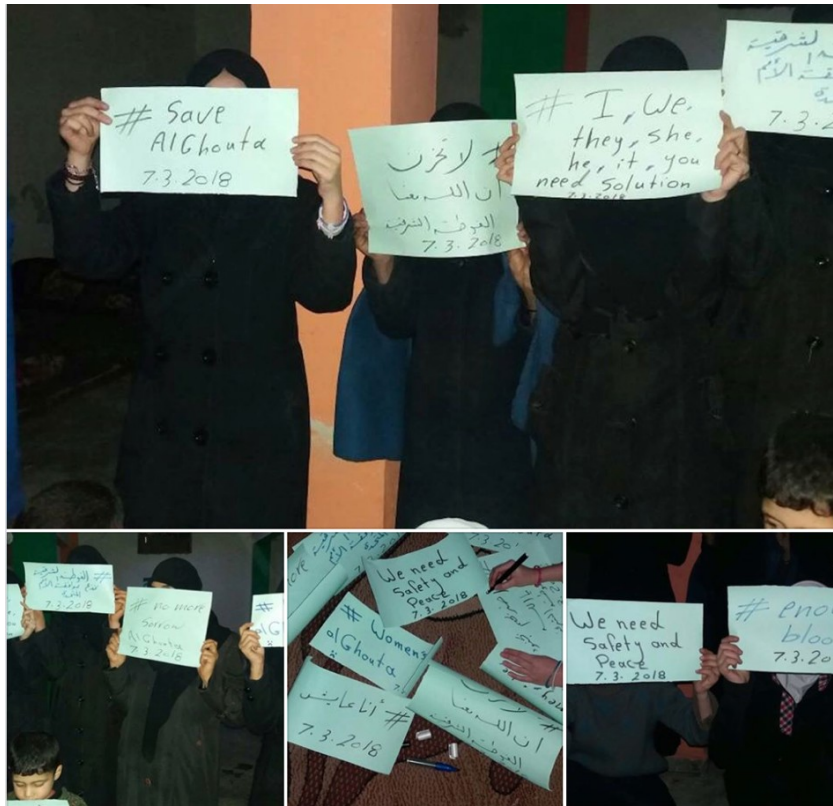 # Save
AlGhouta
7.3.2018
# لا تحزن
ان الله معنا
الغوطة الشرقية
7.3.2018
# I, we,
they, she,
he, it, you
need solution
7.3.2018
7.3.2
7.3.2018
# no more
Sorrow
AlGhouta
7.3.2018
#
alGh
7.3.20
We need
Safety and
Peace
7.3.2018
# Women
alGhouta
# أنا عايش
7.3.2018
ان الله معنا
الغوطة الشرقية
We need
Safety and
Peace
7.3.2018
# eno
bloo
7.3.20